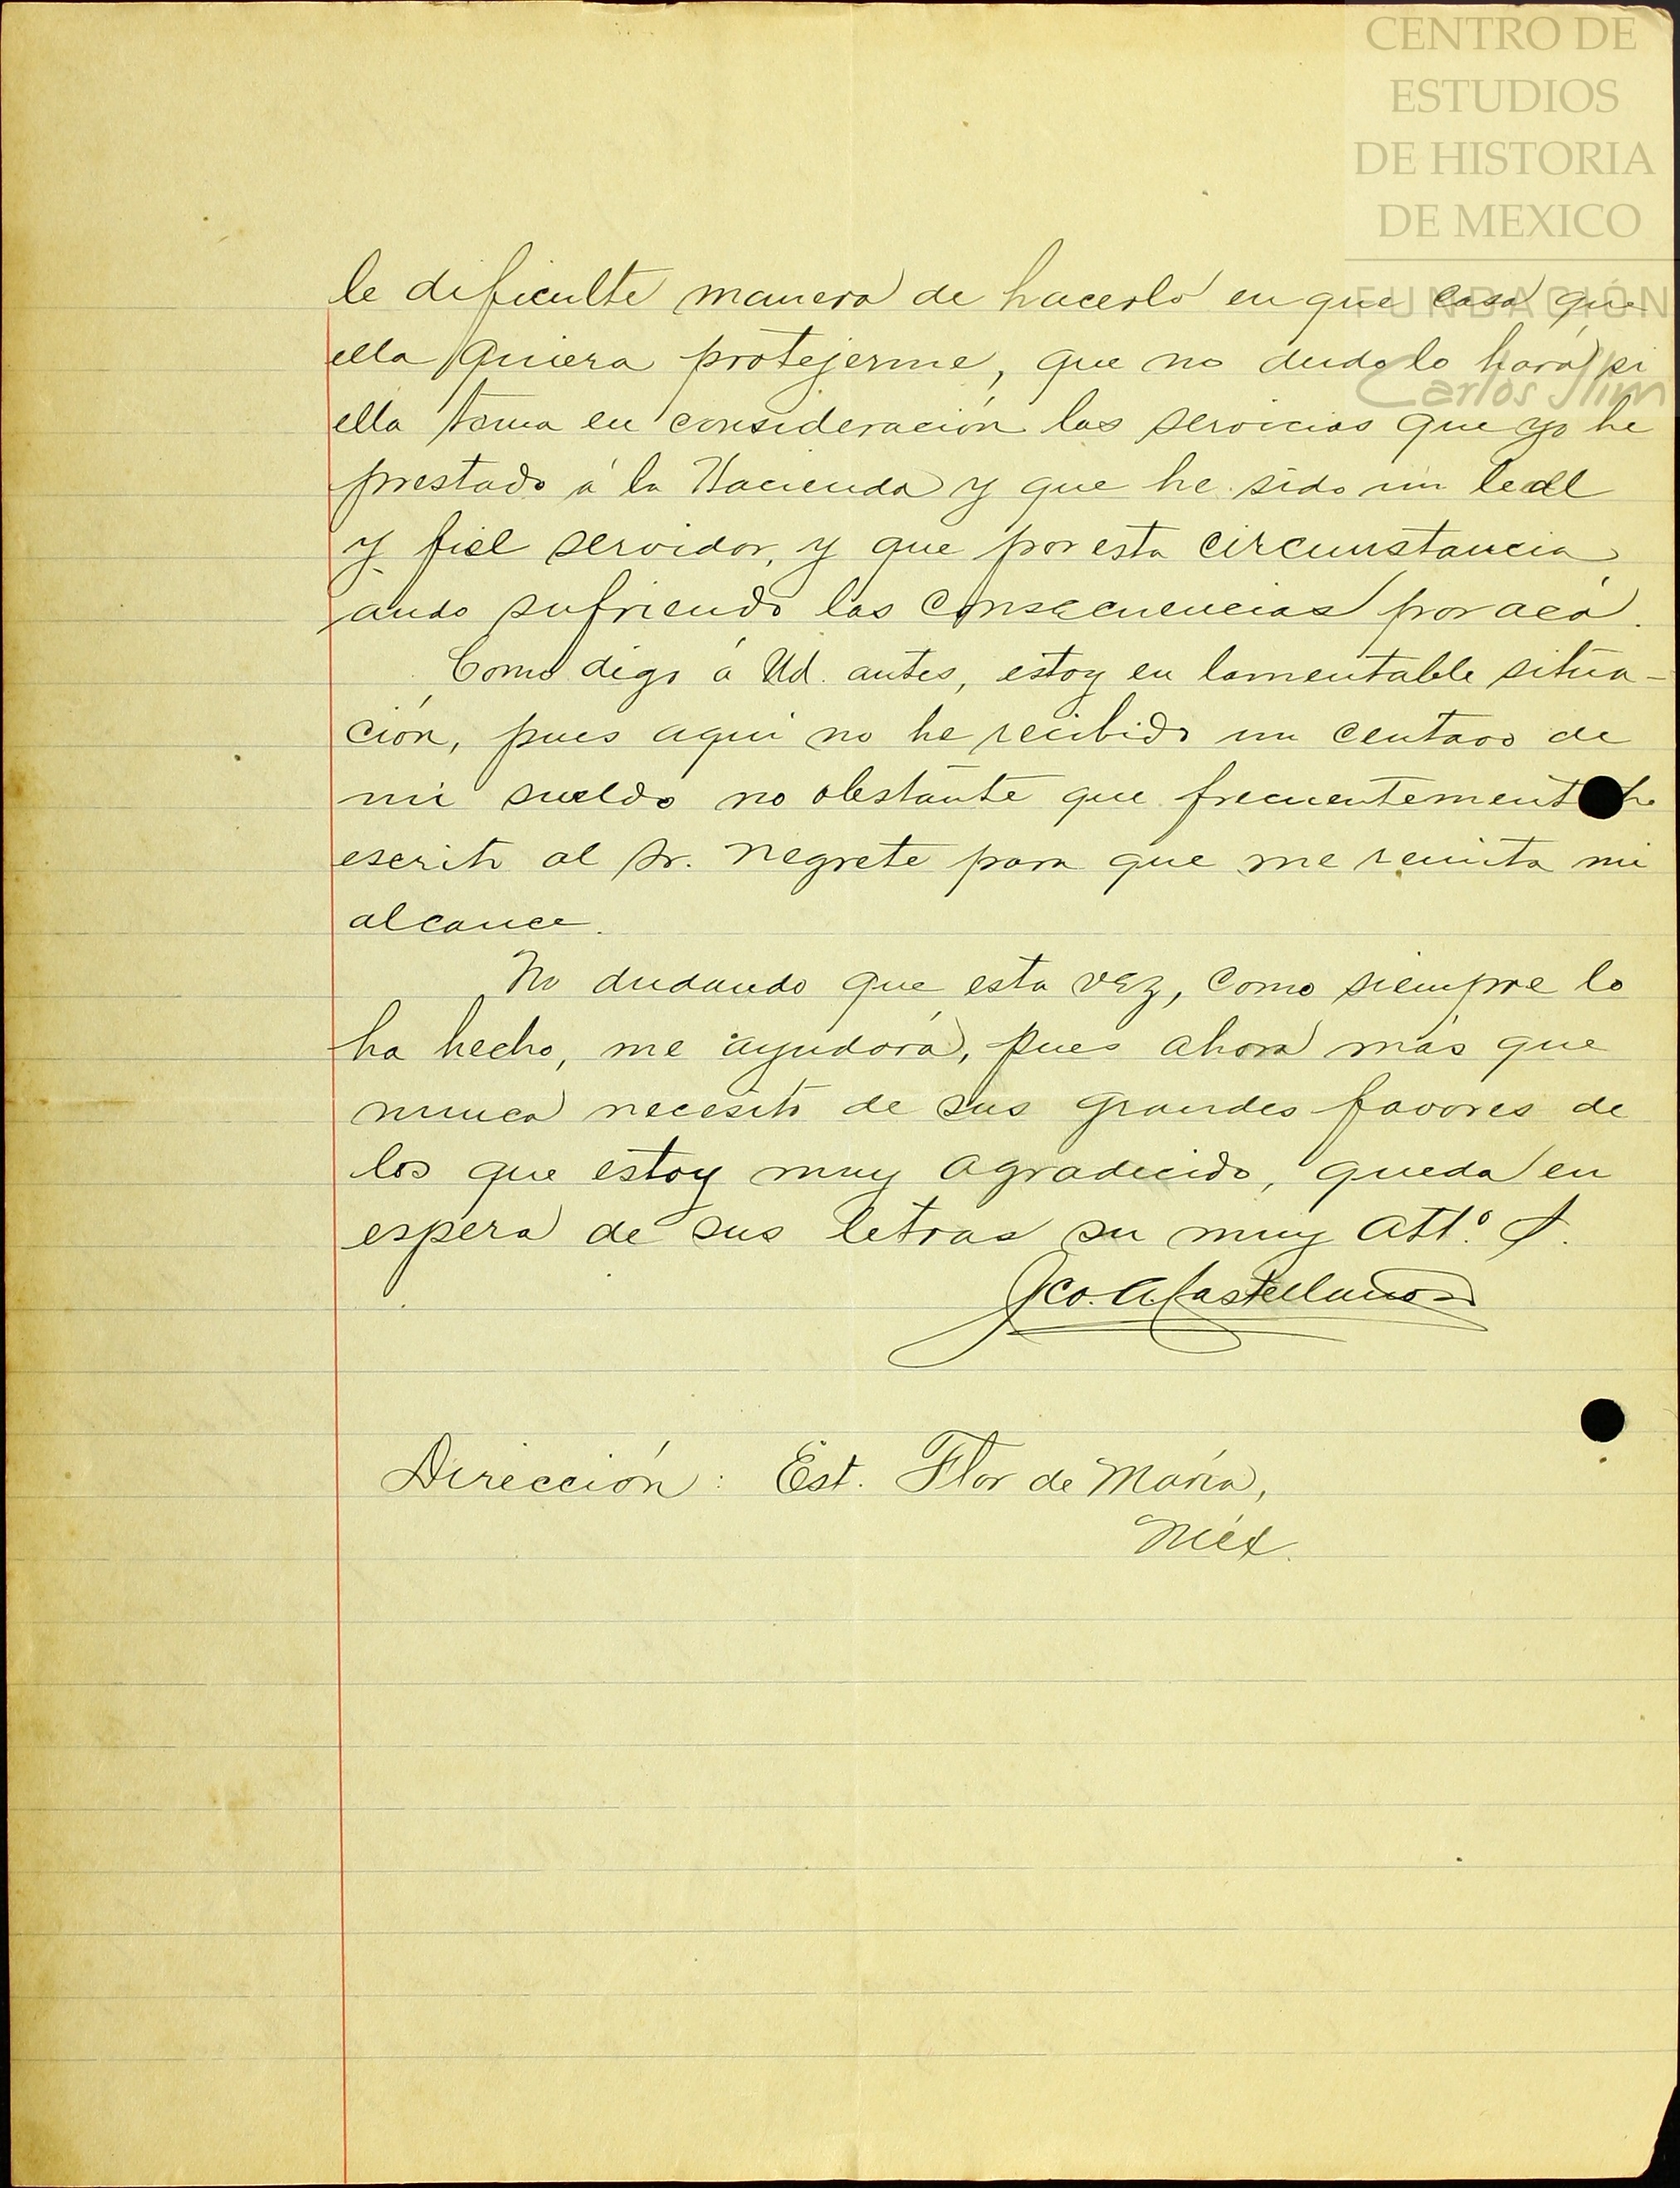 CENTRO DE
ESTUDIOS
DE HISTORIA
DE MEXICO
FUNDACIÓN
Carlos Slim
le dificulte manera de hacerlo en que casa que
ella quiera protejerme, que no dudo lo hará si
ella toma en consideración los servicios que yo he
prestado á la Hacienda y que he sido un leal
y fiel servidor, y que por esta circunstancia
ando sufriendo las consecuencias por acá.
Como digo á Ud. antes, estoy en lamentable situa-
ción, pues aqui no he recibido un centavo de
mi sueldo no obstante que frecuentement he
escrito al Sr. Negrete para que me remita mi
alcance.
No dudando que esta vez, como siempre lo
ha hecho, me ayudará, pues ahora más que
nunca necesito de sus grandes favores de
los que estoy muy agradecido, queda en
espera de sus letras su muy att.º S.
Fco. A. Castellanos
Dirección: Est. Flor de María,
Méx.